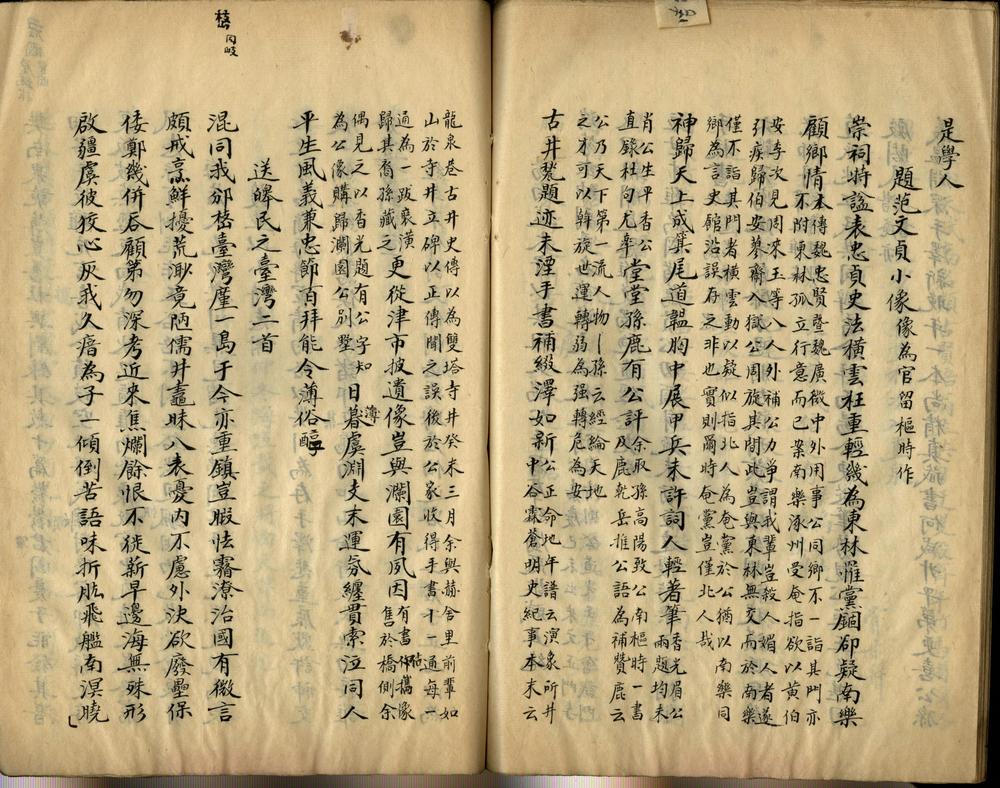 是學人
題范文貞小像像為官留樞時作
崇祠特謚表忠貞史法橫雲枉重輕幾為東林罹黨錮卻疑南樂
顧鄉情本傳魏忠賢暨魏廣微中外用事公同鄉不一詣其門亦
不附東林孤立行意而已案南樂涿州受奄指欲以黃伯
安李次見周來玉等八人外補公力爭謂我輩豈殺人媚人者遂
引疾歸伯安蓼齋入獄公周旋其間此豈與東林無交而於南樂
僅不詣其門者橫雲動以疑似指北人為奄黨於公猶以南樂同
鄉為言史館沿誤存之非也實則爾時奄黨豈僅北人哉
神歸天上成箕尾道韞胸中展甲兵未許詞人輕著筆香光眉公
兩題均未
肖公生平香公
直錄杜句尤率堂堂孫鹿有公評余取孫高陽致公南樞時一書
及鹿乾岳推公語為補贊鹿云
公乃天下第一流人物孫云經綸天地
之才可以斡旋世運轉弱為強轉危為安
古井甃題迹未湮手書補綴澤如新公正命地年譜云演象所井
中谷霖蒼明史紀事本末云
龍泉巷古井史傳以為雙塔寺井癸未三月余與赫舍里前輩如
山於寺井立碑以正傳聞之誤後於公家收得手書十一通每一
通為一跋裝潢
歸其裔孫藏之更從津市披遺像豈與瀾園有夙因有書仲攜像
售於橋側余
偶見之以香光題有公字知
為公像購歸瀾園公別墅日薄暮虞淵支末運氛纏貫索泣同人
平生風義兼忠節百拜能令薄俗醇
送皞民之臺灣二首
混同我邠嵆臺灣廛一島于今亦重鎮豈暇怯霧潦治國有微言
頗戒烹鮮擾荒渺竟陋儒井鼃昧八表憂內不慮外決欲廢壘保
倭鄭幾併吞顧第勿深考近來焦爛餘恨不徙薪早邊海無殊形
啟疆虞彼狡心灰我久瘖為子一傾倒苦語味折肱飛艦南溟曉
嵆 同岐